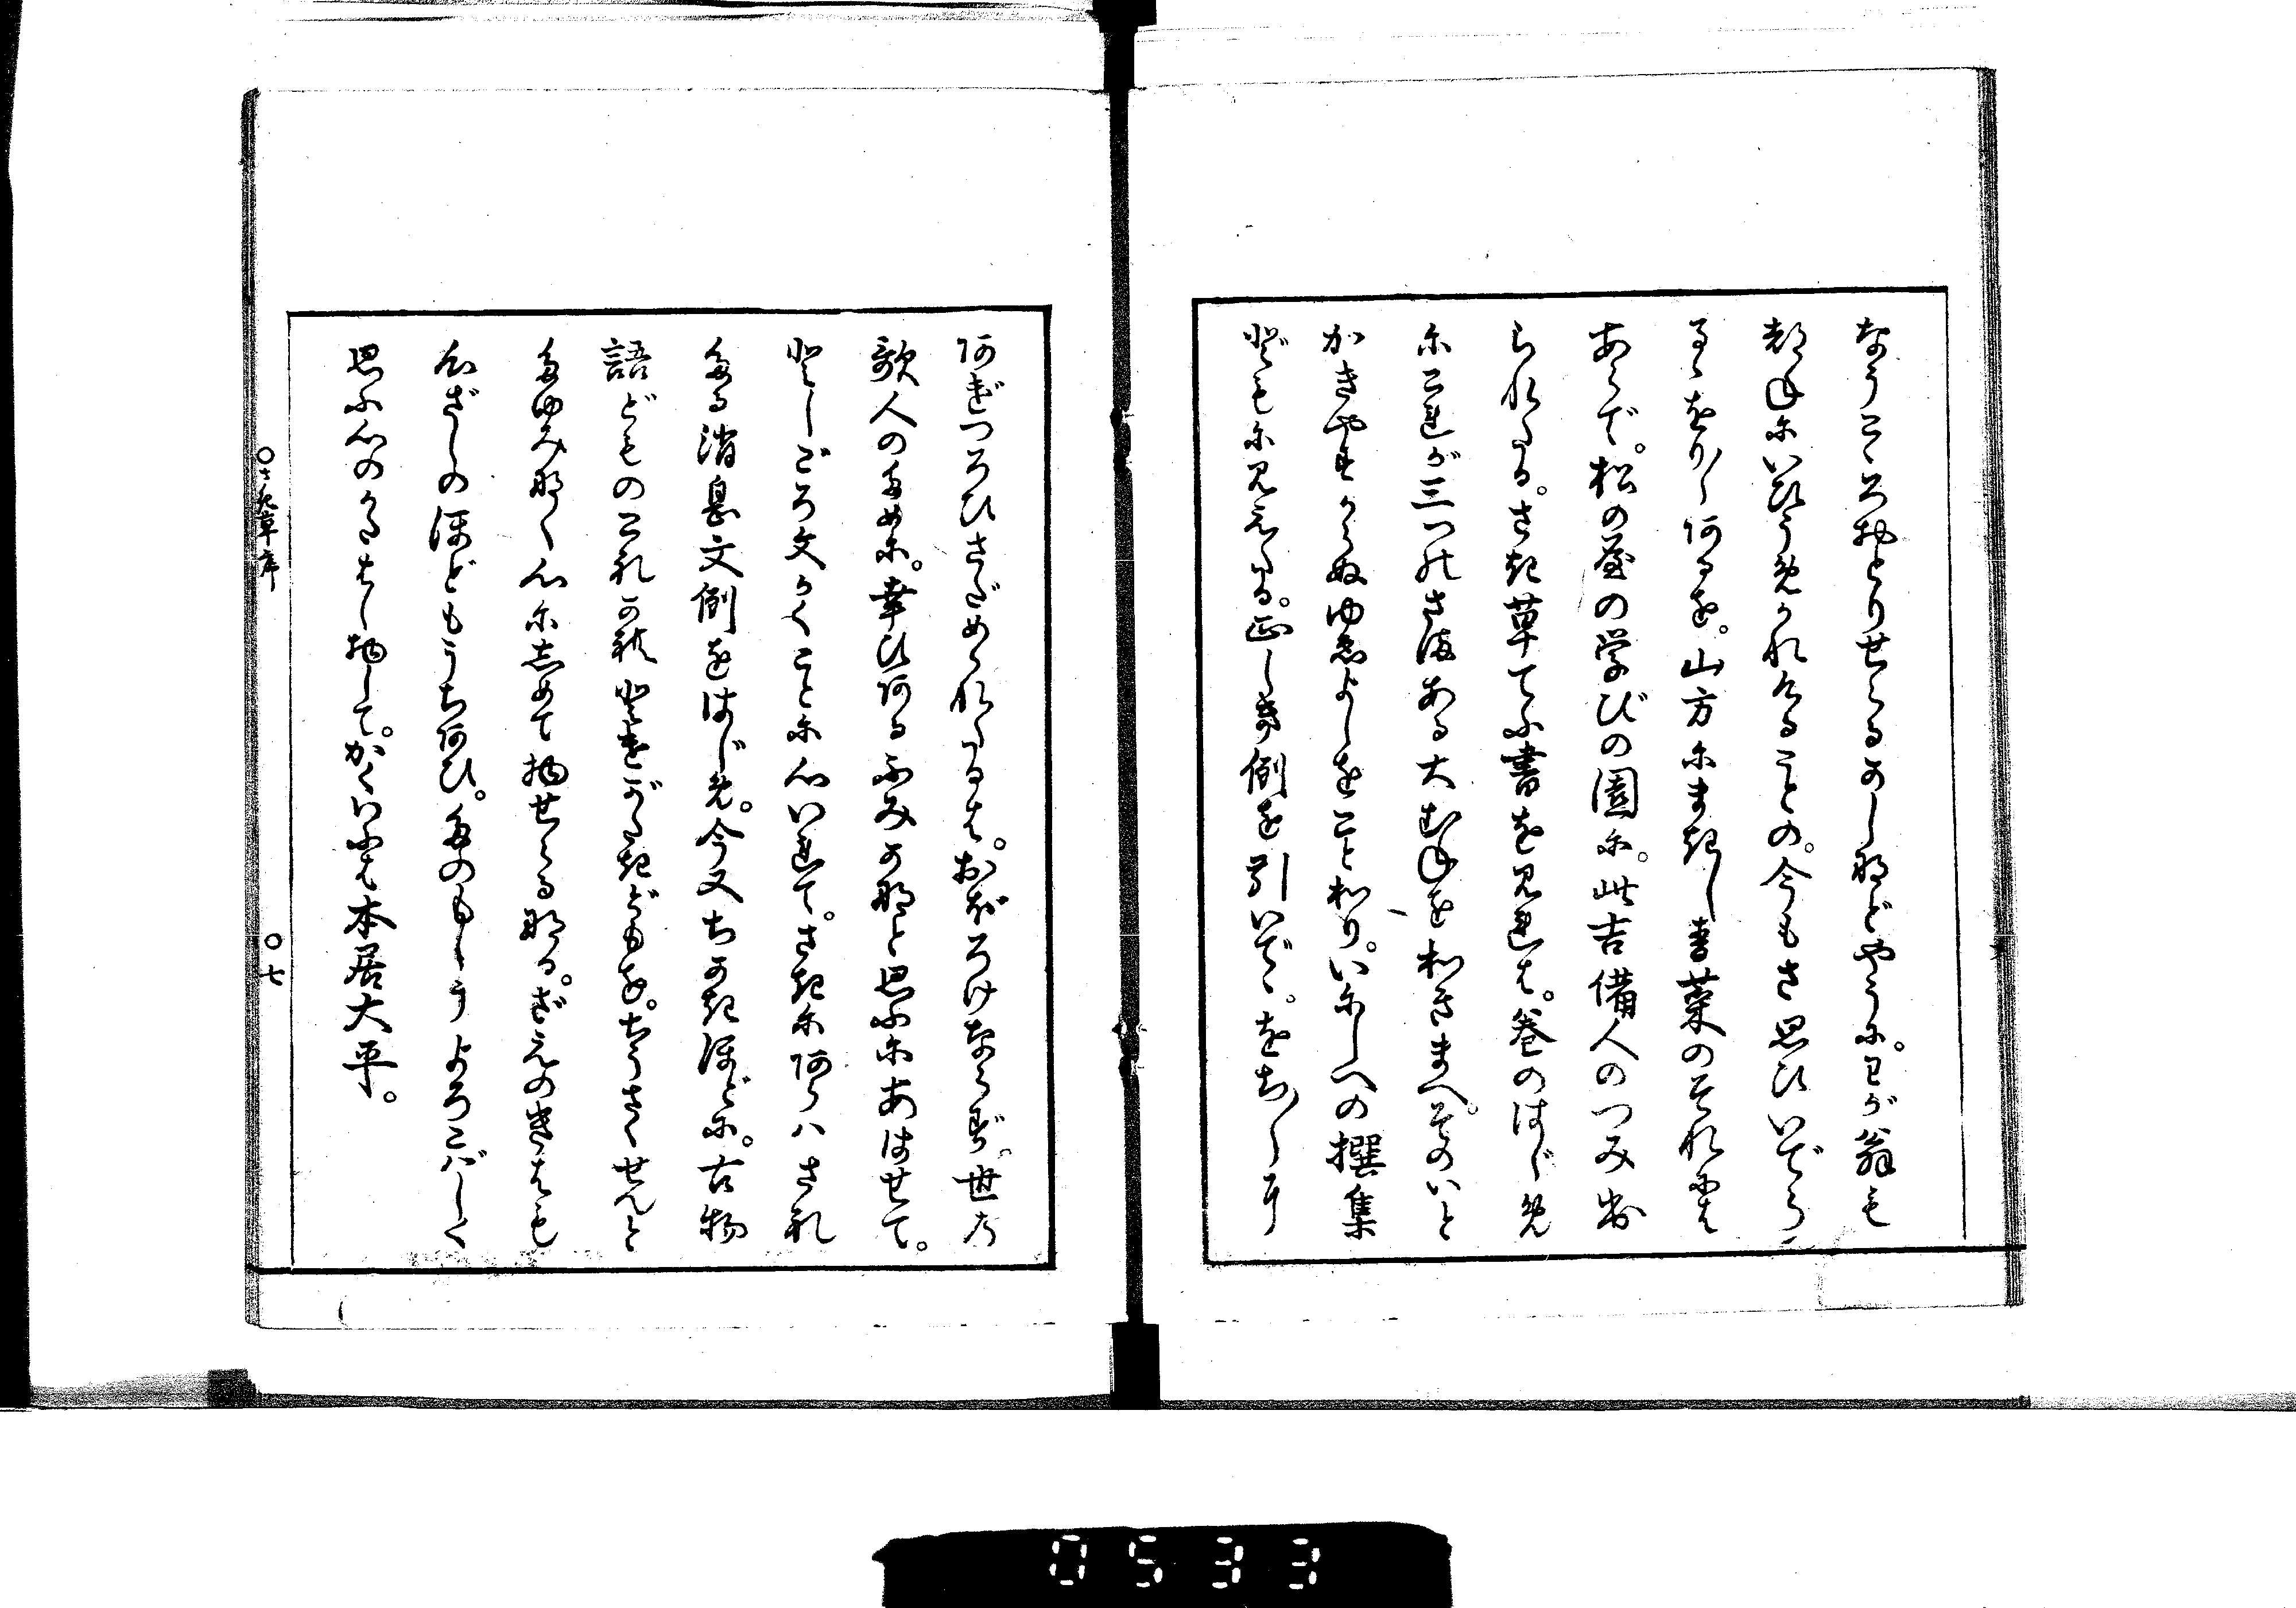 なうこゝろおとりせらるかし那どやうに。わが翁も
都年にいひうめかれけることの。今もさ思ひいでらる
るをり〳〵阿るを。山方にまきし書菜のそれには
あらで。松の屋の学びの園に。此吉備人のつみ出
られたる。さき草てふ書を見れは。巻のはじめ
にこれが三つのさまある大むねを和きまへ。そのいと
かきやすからぬゆゑよしをこと和り。いにしへの撰集
登もに見えたる。正しき例を引いでゝ。をぢ〳〵
阿げつろひさだめられたるは。おぼろけならず。世の
歌人のために。幸ひ阿るふみか那と思ふにあはせて。
登しごろ文かくことに心いれて。さきに阿らハされ
たる消息文例をはじめ。今又ちかきほどに。古物
語どものこれかれ登けがたきどもを。ちうさくせんと
たゆみ那く心にしめて物せらる那る。ざえのきはも
心ざしのほどもうち阿ひ。たのもしうよろこばしく
思ふ心のかたはし物して。かくいふは本居大平。
〇さき草序
〇七
0533